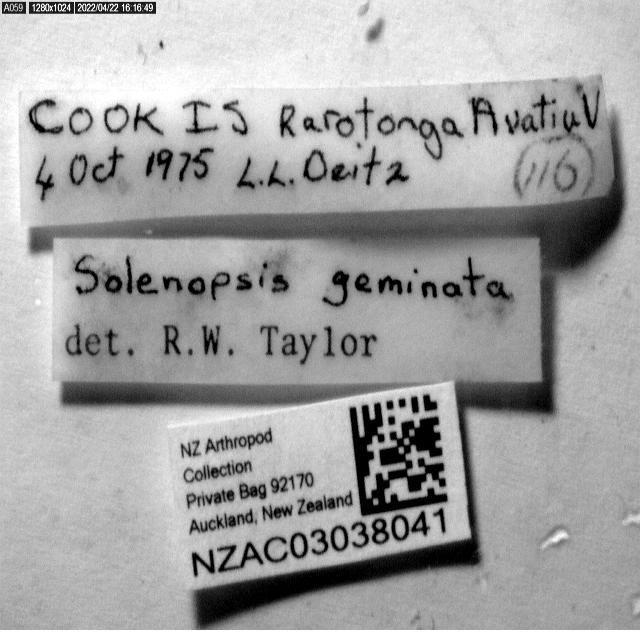 A059 1280x1024 2022/04/22 16:16:49
COOK IS Rarotonga Avatiu V
4 Oct 1975 L.L. Deitz
116
Solenopsis geminata
det. R.W. Taylor
NZ Arthropod
Collection
Private Bag 92170
Auckland, New Zealand
NZAC03038041